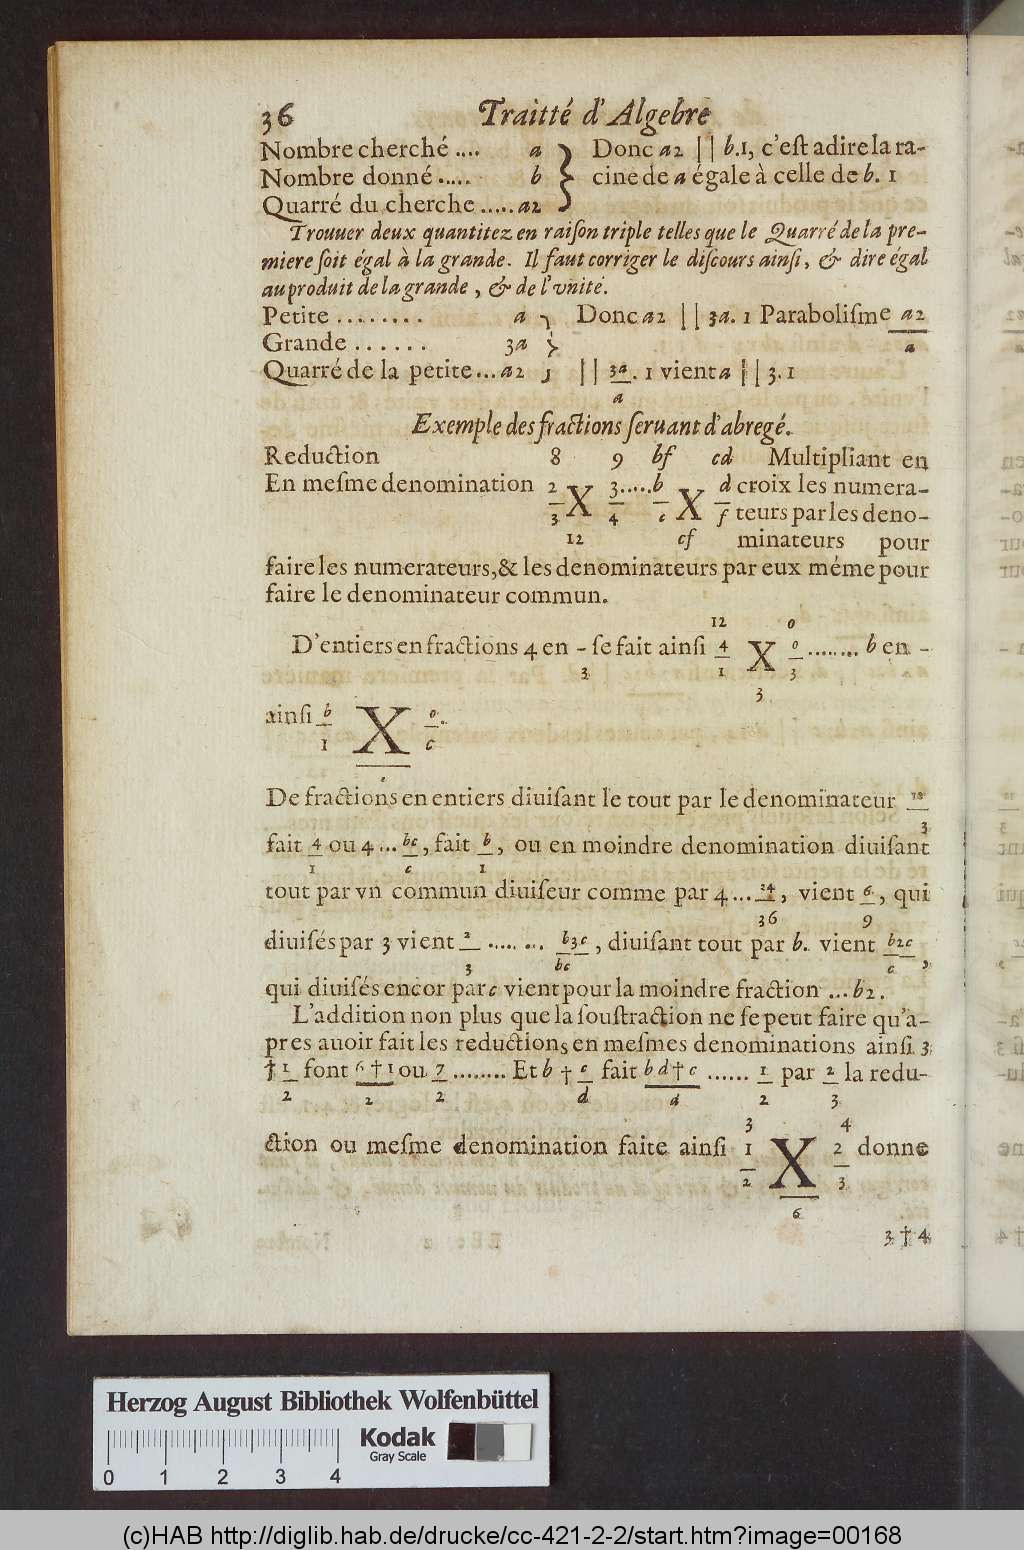 36 Traitté d'Algebre
Nombre cherché .... a } Donc a2 || b.1, c'eſt adire la ra-
Nombre donné ..... b } cine de a égale à celle de b. 1
Quarré du cherche ..... a2 }
Trouuer deux quantitez en raiſon triple telles que le Quarré de la pre-
miere ſoit égal à la grande. Il faut corriger le diſcours ainſi, & dire égal
au produit de la grande, & de l'vnité.
Petite ........ a } Donc a2 || 3a. 1 Paraboliſme a2
Grande ...... 3a } a
Quarré de la petite ... a2 } || 3a. 1 vient a || 3.1
a
Exemple des fractions ſeruant d'abregé.
Reduction 8 9 bf cd Multipliant en
En meſme denomination 2 X 3 ..... b X d croix les numera-
3 4 c f teurs par les deno-
12 cf minateurs pour
faire les numerateurs, & les denominateurs par eux méme pour
faire le denominateur commun.
12 0
D'entiers en fractions 4 en - ſe fait ainſi 4 X 0 ........ b en -
3 1 3
3
ainſi b X 0.
1 c
De fractions en entiers diuiſant le tout par le denominateur 12
3
fait 4 ou 4 ... bc, fait b, ou en moindre denomination diuiſant
1 c 1
tout par vn commun diuiſeur comme par 4 ... 24, vient 6, qui
36 9
diuiſés par 3 vient 2 ...... b3c, diuiſant tout par b. vient b2c,
3 bc c
qui diuiſés encor par c vient pour la moindre fraction ... b2.
L'addition non plus que la ſouſtraction ne ſe peut faire qu'a-
pres auoir fait les reductions en meſmes denominations ainſi 3
† 1 font 6 † 1 ou 7 ........ Et b † c fait b d † c ...... 1 par 2 la redu-
2 2 2 d d 2 3
3 4
ction ou meſme denomination faite ainſi 1 X 2 donne
2 3
6
3 † 4
Herzog August Bibliothek Wolfenbüttel
Kodak
Gray Scale
0 1 2 3 4
(c)HAB http://diglib.hab.de/drucke/cc-421-2-2/start.htm?image=00168